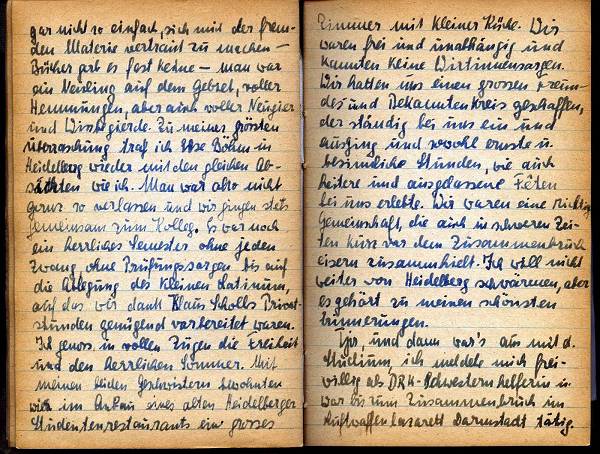 gar nicht so einfach, sich mit der frem-
den Materie vertraut zu machen –
Bücher gab es fast keine – man war
ein Neuling auf dem Gebiet, voller
Hemmungen, aber auch voller Neugier
und Wissbegierde. Zu meiner grössten
Überraschung traf ich Böhm in
Heidelberg wieder mit den gleichen Ab-
sichten wie ich. Man war also nicht
ganz so verlassen und wir gingen stets
gemeinsam zum Kolleg. Es war noch
ein herrliches Semester ohne jeden
Zwang, ohne Prüfungssorgen bis auf
die Ablegung des kleinen Latinum,
auf das wir dank Klaus Scholls Privat-
stunden genügend vorbereitet waren.
Ich genoss in vollen Zügen die Freiheit
und den herrlichen Sommer. Mit
meinen beiden Geschwistern bewohnten
wir im Anbau eines alten Heidelberger
Studentenrestaurants ein grosses
Zimmer mit kleiner Küche. Wir
waren frei und unabhängig und
kannten keine Wirtinnensorgen.
Wir hatten uns einen grossen Freun-
des und Bekanntenkreis geschaffen,
der ständig bei uns ein und
ausging und sowohl ernste u.
besinnliche Stunden, wie auch
heitere und ausgelassene Fêten
bei uns erlebte. Wir waren eine richtige
Gemeinschaft, die auch in schweren Zei-
ten kurz vor dem Zusammenbruch
eisern zusammenhielt. Ich will nicht
weiter von Heidelberg schwärmen, aber
es gehört zu meinen schönsten
Erinnerungen.
Tja, und dann war's aus mit d.
Studium, ich meldete mich frei-
willig als DRK-Schwesternhelferin u.
war bis zum Zusammenbruch im
Luftwaffenlazarett Darmstadt tätig.